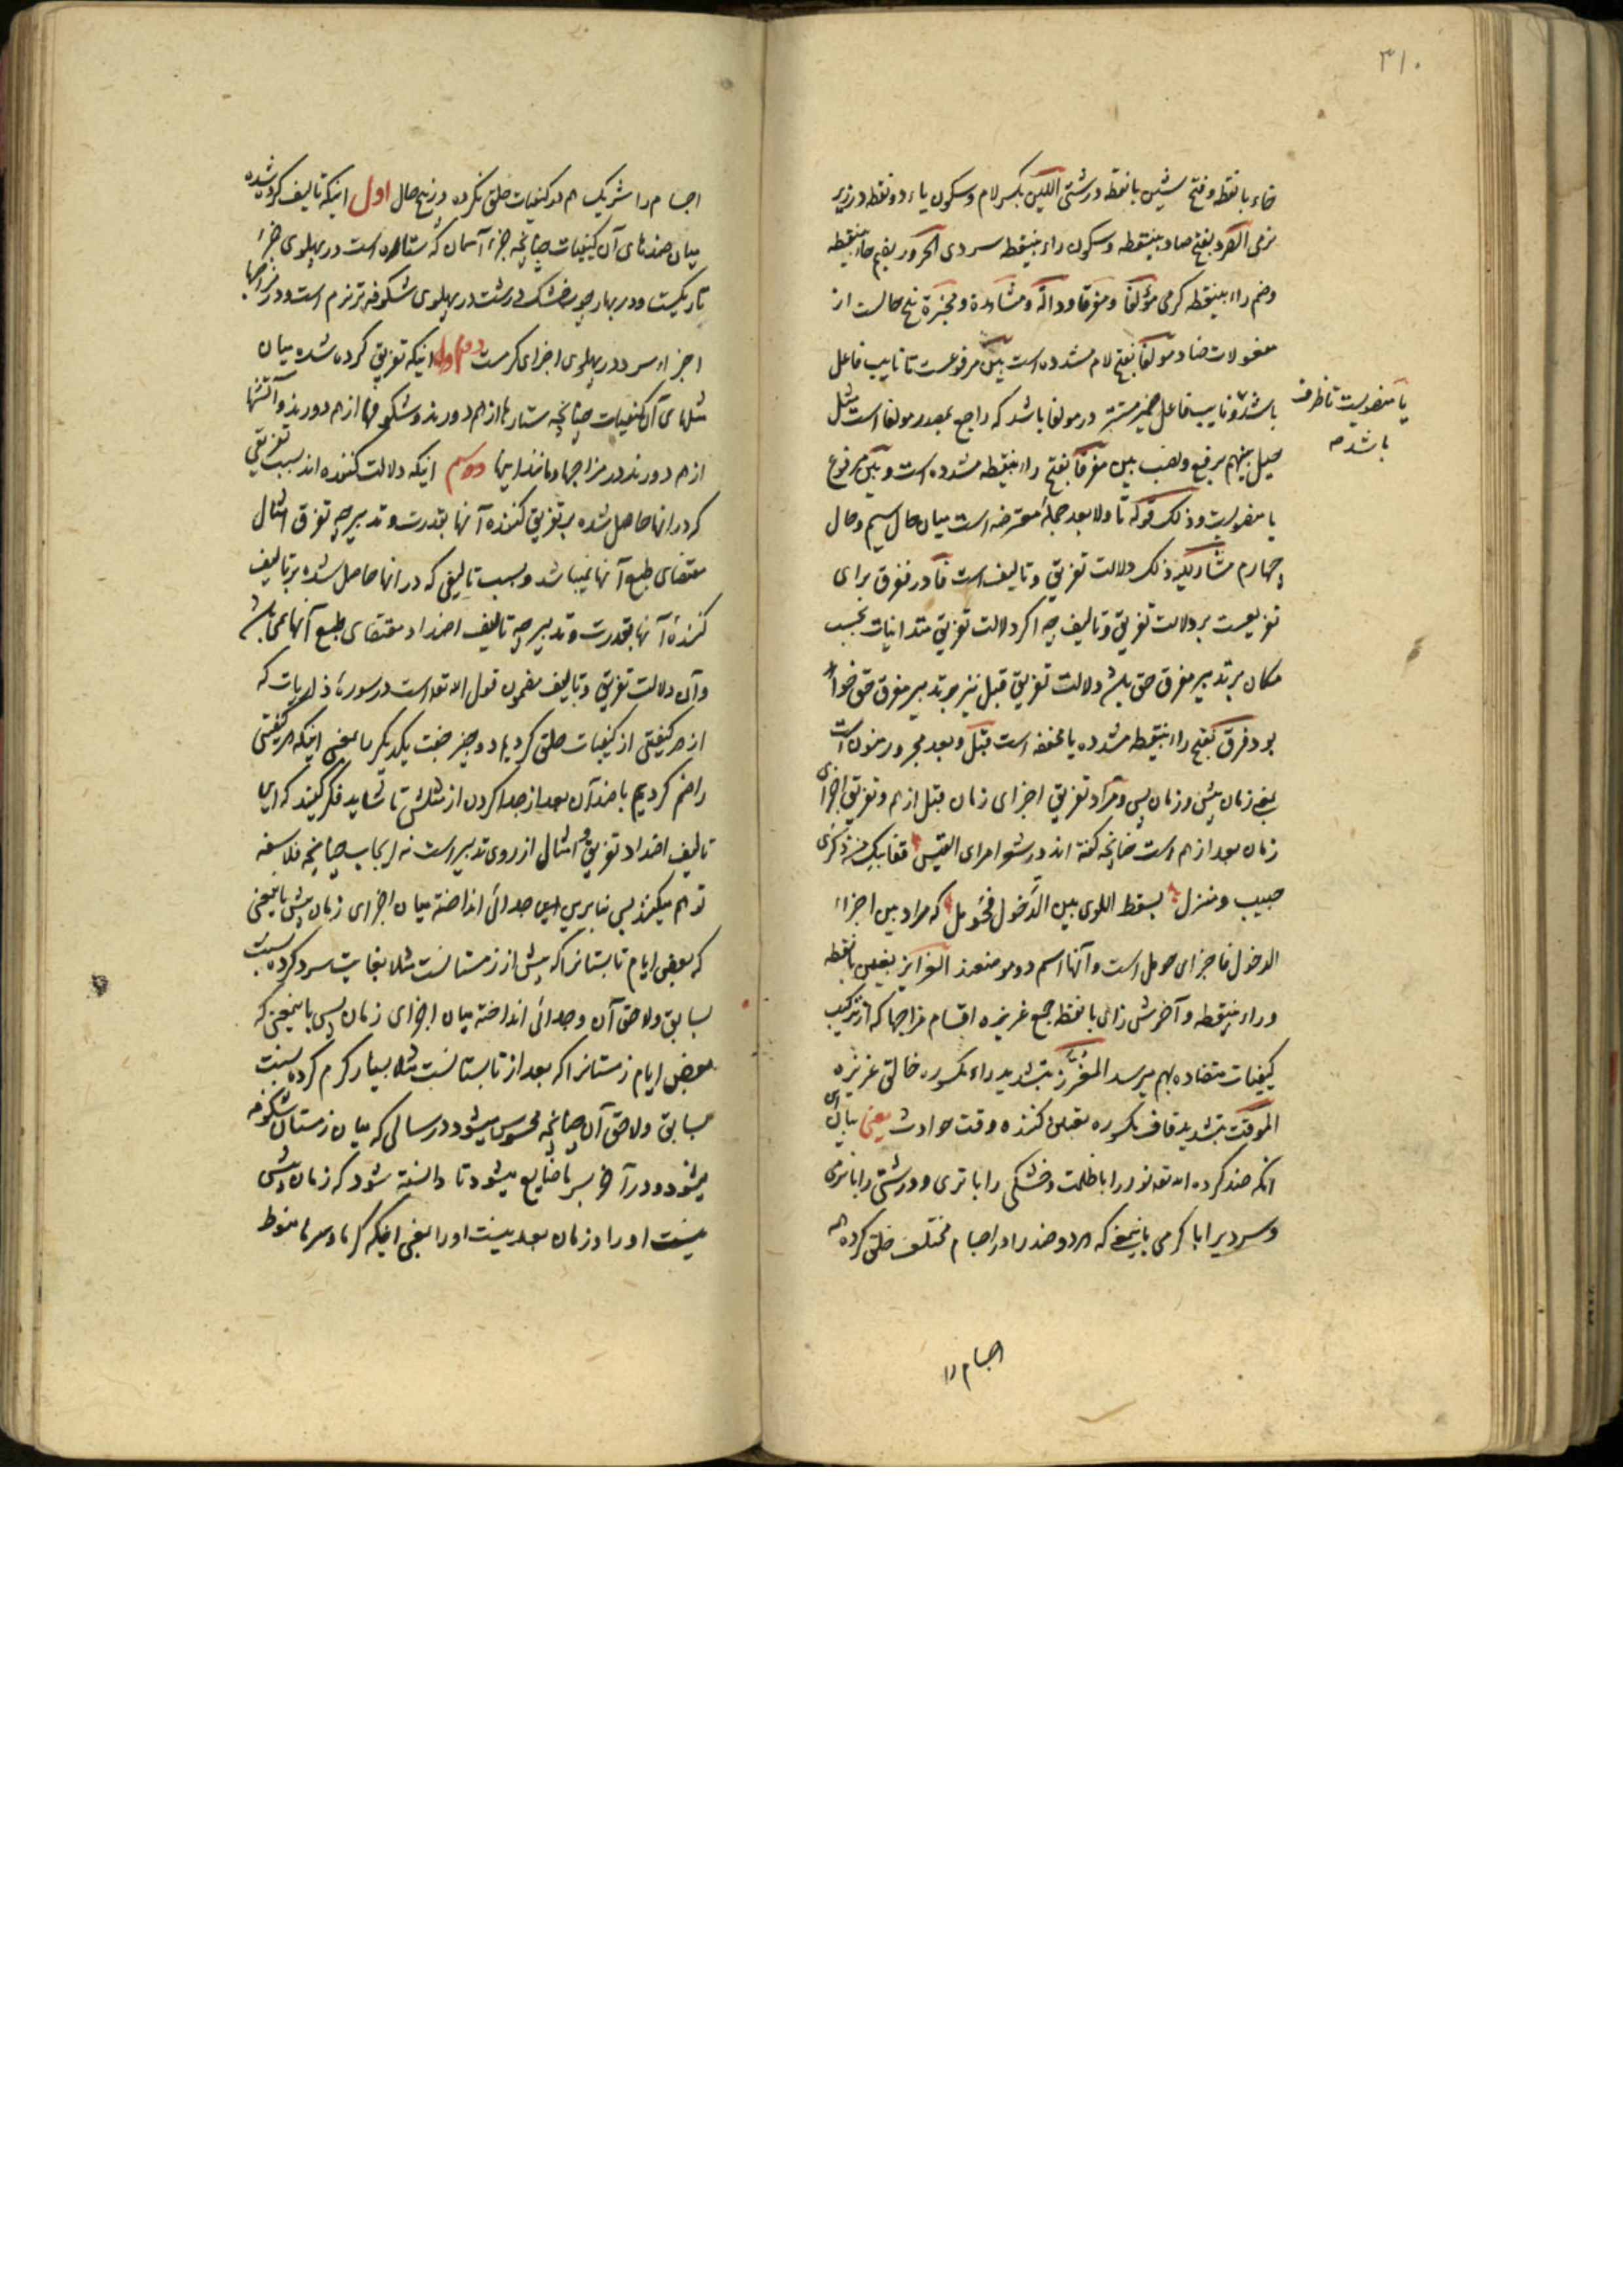 ۳۱۰
خاء بانقطه و فتح شین بانقطه درشتی اللین بکسر لام و سکون یاء دو نقطه در زیر
نرمی الصرد بفتح صاد بینقطه و سکون راء بینقطه سردی الحرور بضم حاء بینقطه
وضم راء بینقطه کرمی مؤلفا و مفرقا و دالة و مشاهدة و مخبرة پنج حالست از
مفعولات ضاد مولفا بفتح لام مشدده است بین مرفوعست تا نایب فاعل
باشد و نایب فاعل ضمیر مستتر در مولفا باشد که راجع بمصدر مولفا است مثل
یا منصوبست تا ظرف
باشد
حیل بینهم برفع و نصب بین مفرقا بفتح راء بینقطه مشدده است و بین مرفوع
یا منصوبست و ذلک قوله تا ولا بعد جملهٔ معترضه است میان حال سیم و حال
چهارم مشار الیه ذلک دلالت تفریق و تالیف است فا در ففرق برای
تفریعست بر دلالت تفریق و تالیف چه اکر دلالت تفریق متدانیات بحسب
مکان بر تدبیر مفرق حق باشد دلالت تفریق قبل نیز بر تدبیر مفرق حق خواهد
بود فرق بفتح راء بینقطه مشدده یا مخففه است قبل و بعد مجرور منون است
بمعنی زمان پیش و زمان پس و مراد تفریق اجزای زمان قبل از هم و تفریق اجزای
زمان بعد از هم است چنانچه گفته اند در شعر امرء القیس قفا نبک من ذکری
حبیب و منزل بسقط اللوی بین الدخول فحومل که مراد بین اجزاء
الدخول فاجزای حومل است و آنها اسم دو موضعند الغرایز بغین بانقطه
و راء بینقطه و آخرش زای بانقطه جمع غریزه اقسام مزاجها که از ترکیب
کیفیات متضاده بهم میرسد المغرز بتشدید راء مکسوره خالق غریزه
الموقت بتشدید قاف مکسوره تعیین کننده وقت حوادث یعنی بیان
انکه ضد کرده الله تعه نور را با ظلمت و خشکی را با تری و درشتی را با نرمی
و سردیرا با کرمی باینمعنی که هر دو ضد را در اجسام مختلف خلق کرده
اجسام را
اجسام را شریک هم در کیفیات خلق نکرده در پنج حال اول اینکه تالیف کرده شده
میان ضدهای آن کیفیات چنانچه جزء آسمان که ستاره است در پهلوی جزء
تاریکست و در بهار چوب خشک درشت در پهلوی شکوفه تر نرم است و در مزاجها
اجزاء سرد در پهلوی اجزای کرمست دوم اینکه تفریق کرده شده میان
مثلهای آن کیفیات چنانچه ستاره ها از هم دورند و شکوفها از هم دورند و آتشها
از هم دورند در مزاجها و مانند اینها سیم اینکه دلالت کننده اند بسبب تفریقی
که در انها حاصل شده بر تفریق کننده آنها بقدرت و تدبیر چه تفرق امثال
مقتضای طبع آنها نمیباشد و بسبب تالیفی که در انها حاصل شده بر تالیف
کنندهٔ آنها بقدرت و تدبیر چه تالیف اضداد مقتضای طبع آنها نمی باشد
و آن دلالت تفریق و تالیف مضمون قول الله تعه است در سورهٔ ذاریات که
از هر کیفیتی از کیفیات خلق کردیم دو چیز جفت یکدیکر را بمعنی اینکه هر کیفیتی
را ضم کردیم با ضد آن بعد از جدا کردن از مثلش تا شاید فکر کنید که این
تالیف اضداد و تفریق امثال از روی تدبیر است نه ایجاب چنانچه فلاسفه
توهم میکنند پس بنابرین این جدائی انداخته میان اجزای زمان پیش باینمعنی
که بعض ایام تابستانرا که پیش از زمستانست مثلا بغایت سرد کرده نسبت
بسابق و لاحق آن و جدائی انداخته میان اجزای زمان پس باینمعنی که
بعض ایام زمستانرا که بعد از تابستانست مثلا بسیار کرم کرده نسبت
بسابق و لاحق آن چنانچه محسوس میشود در سالی که میان زمستان شکوفه
میشود و در آخر بسرما ضایع میشود تا دانسته شود که زمان پیشی
نیست او را و زمان بعد نیست او را یعنی اینکه کرما و سرما منوط